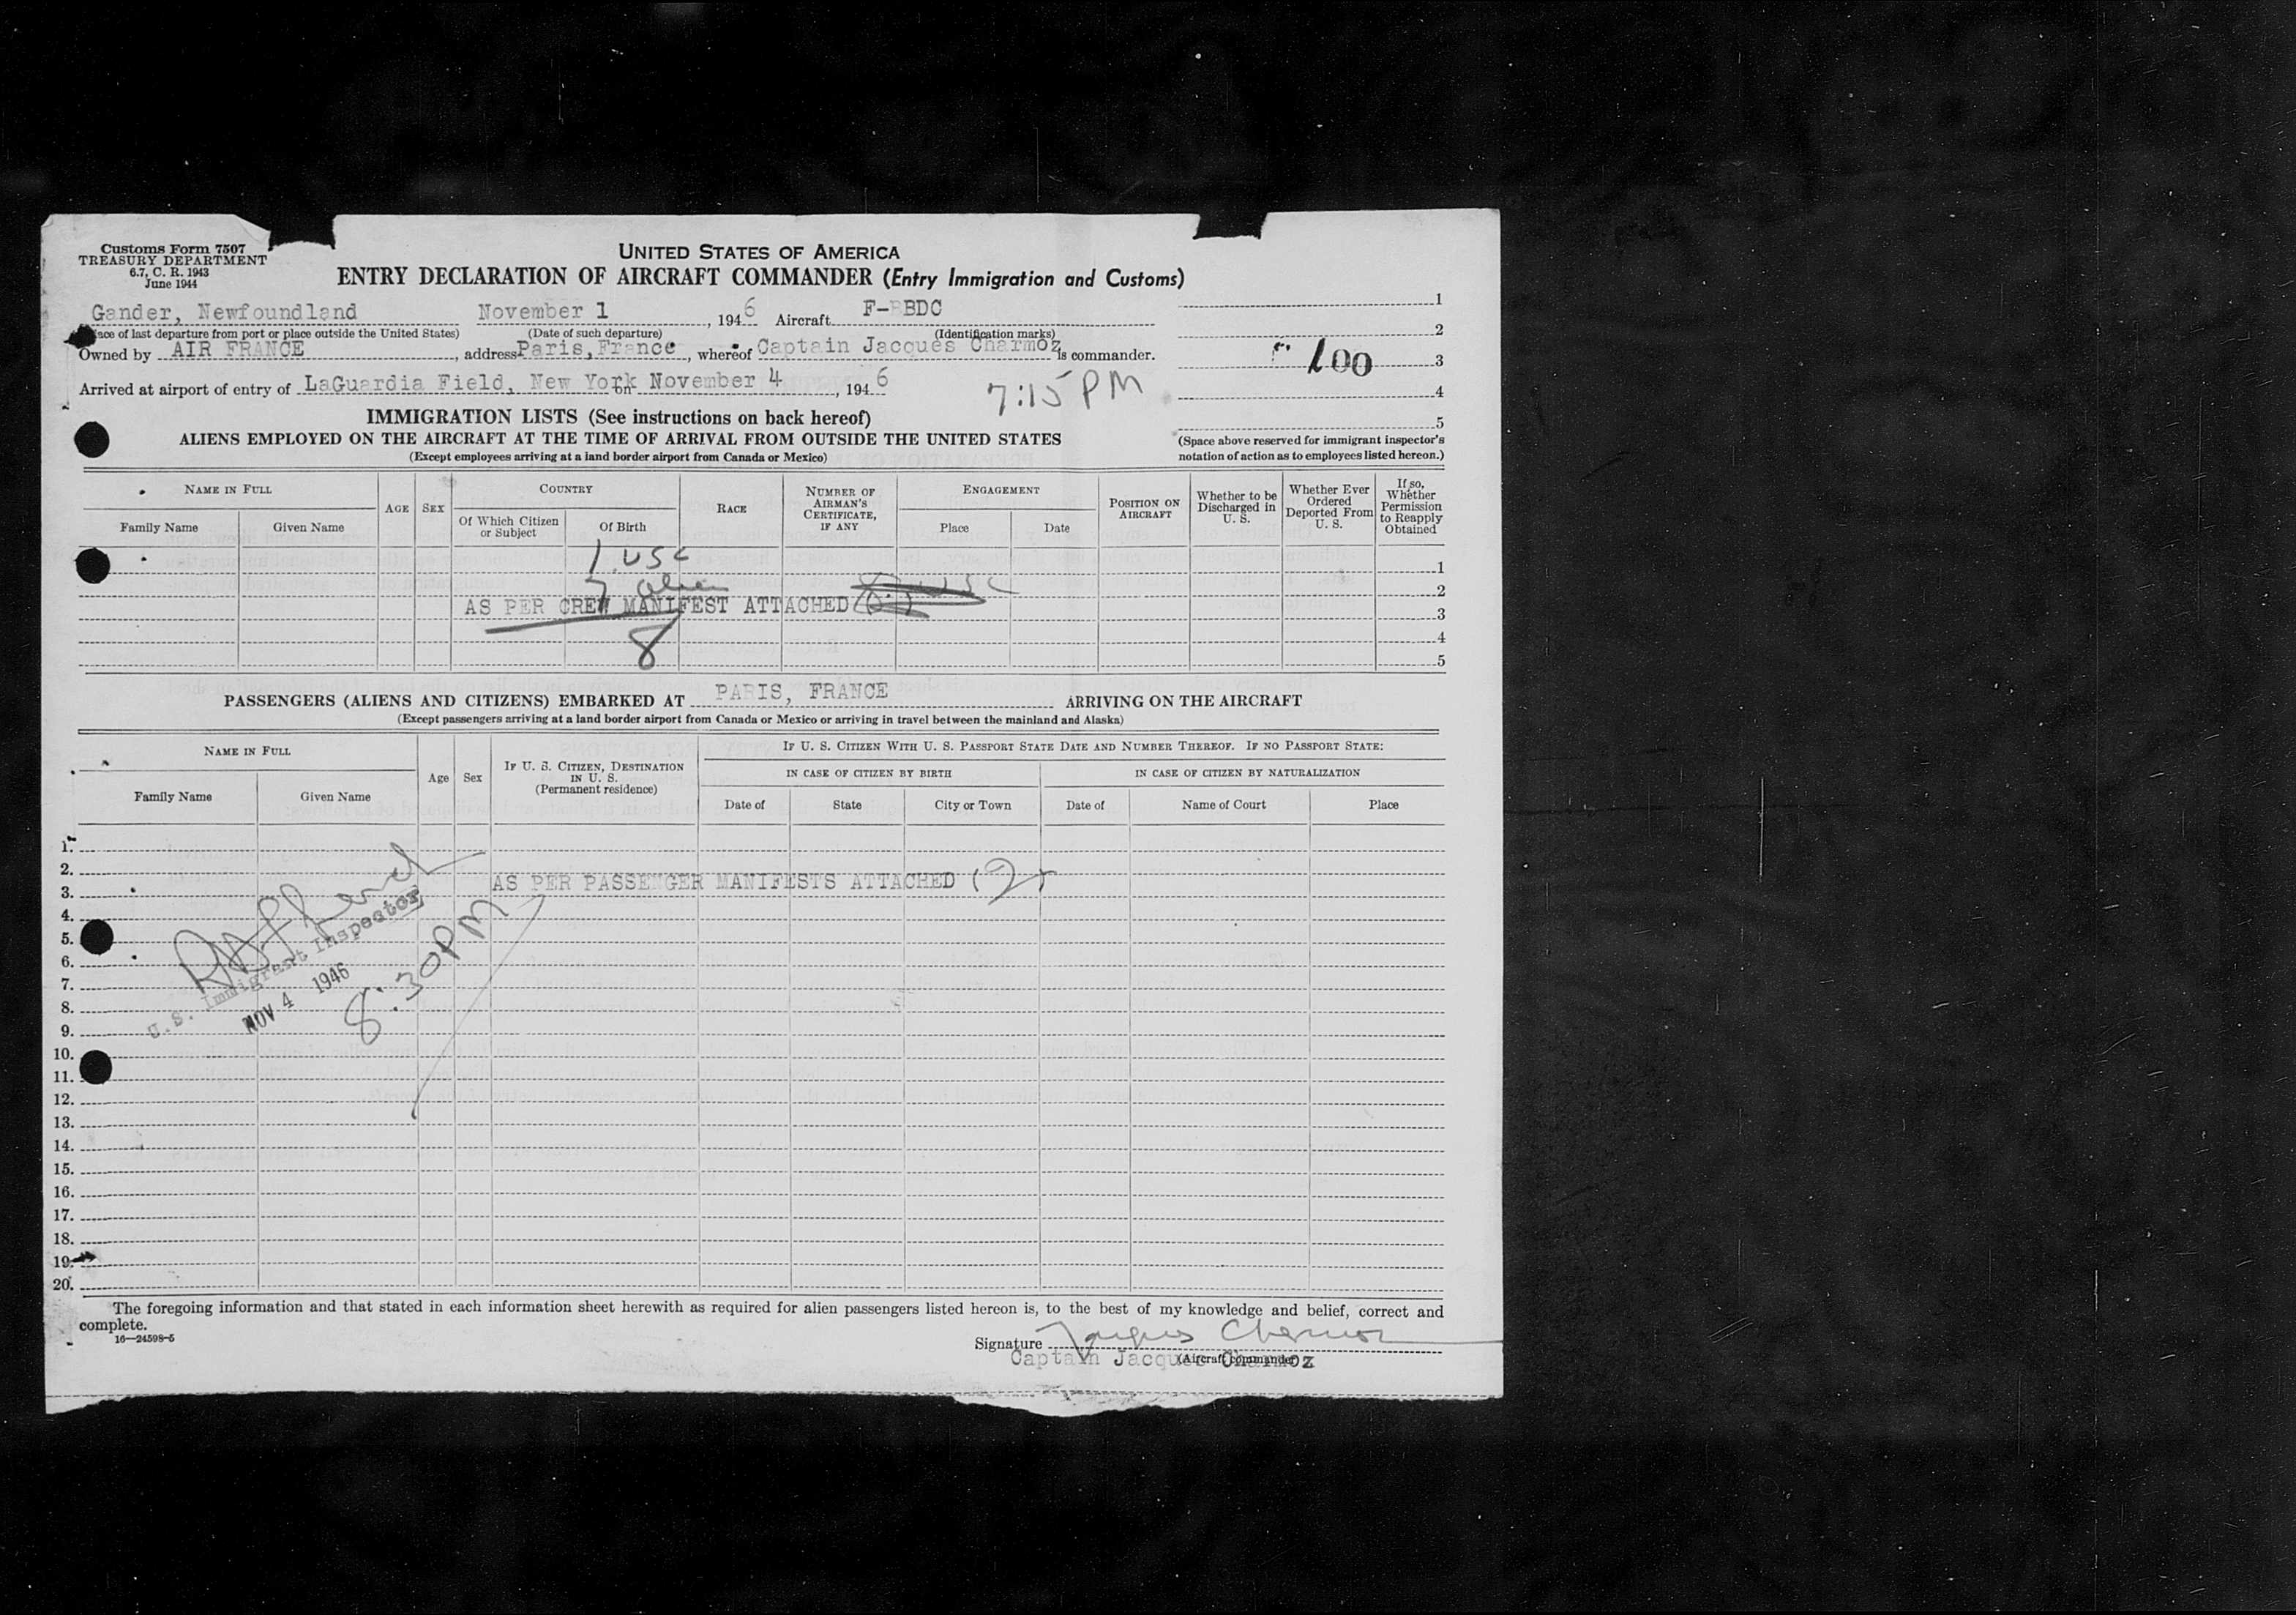 Customs Form 7507
TREASURY DEPARTMENT
6.7, C. R. 1943
June 1944
UNITED STATES OF AMERICA
ENTRY DECLARATION OF AIRCRAFT COMMANDER (Entry Immigration and Customs)
Gander, Newfoundland November 1, 1946 Aircraft F-BBDC
ace of last departure from port or place outside the United States) (Date of such departure) (Identification marks)
Owned by AIR FRANCE, address Paris, France, whereof Captain Jacques Charmoz is commander.
Arrived at airport of entry of LaGuardia Field, New York on November 4, 1946
7:15 PM
1
2
100 3
4
5
(Space above reserved for immigrant inspector's
notation of action as to employees listed hereon.)
IMMIGRATION LISTS (See instructions on back hereof)
ALIENS EMPLOYED ON THE AIRCRAFT AT THE TIME OF ARRIVAL FROM OUTSIDE THE UNITED STATES
(Except employees arriving at a land border airport from Canada or Mexico)
NAME IN FULL
Family Name Given Name
AGE
SEX
COUNTRY
Of Which Citizen or Subject
Of Birth
RACE
NUMBER OF AIRMAN'S CERTIFICATE, IF ANY
ENGAGEMENT
Place Date
POSITION ON AIRCRAFT
Whether to be Discharged in U. S.
Whether Ever Ordered Deported From U. S.
If so, Whether Permission to Reapply Obtained
1 USC 1
7 alien 2
AS PER CREW MANIFEST ATTACHED 3
8 4
5
PASSENGERS (ALIENS AND CITIZENS) EMBARKED AT PARIS, FRANCE ARRIVING ON THE AIRCRAFT
(Except passengers arriving at a land border airport from Canada or Mexico or arriving in travel between the mainland and Alaska)
NAME IN FULL
Family Name Given Name
Age
Sex
IF U. S. CITIZEN, DESTINATION IN U. S.
(Permanent residence)
IF U. S. CITIZEN WITH U. S. PASSPORT STATE DATE AND NUMBER THEREOF. IF NO PASSPORT STATE:
IN CASE OF CITIZEN BY BIRTH
IN CASE OF CITIZEN BY NATURALIZATION
Date of State City or Town Date of Name of Court Place
1.
2.
AS PER PASSENGER MANIFESTS ATTACHED (2)
3.
4.
5.
6.
7.
8.
9.
10.
11.
12.
13.
14.
15.
16.
17.
18.
19.
20.
U.S. Immigrant Inspector
NOV 4 1946
8:30 PM
The foregoing information and that stated in each information sheet herewith as required for alien passengers listed hereon is, to the best of my knowledge and belief, correct and
complete.
16—24598-5
Signature Jacques Charmoz
(Aircraft commander)
Captain Jacques Charmoz